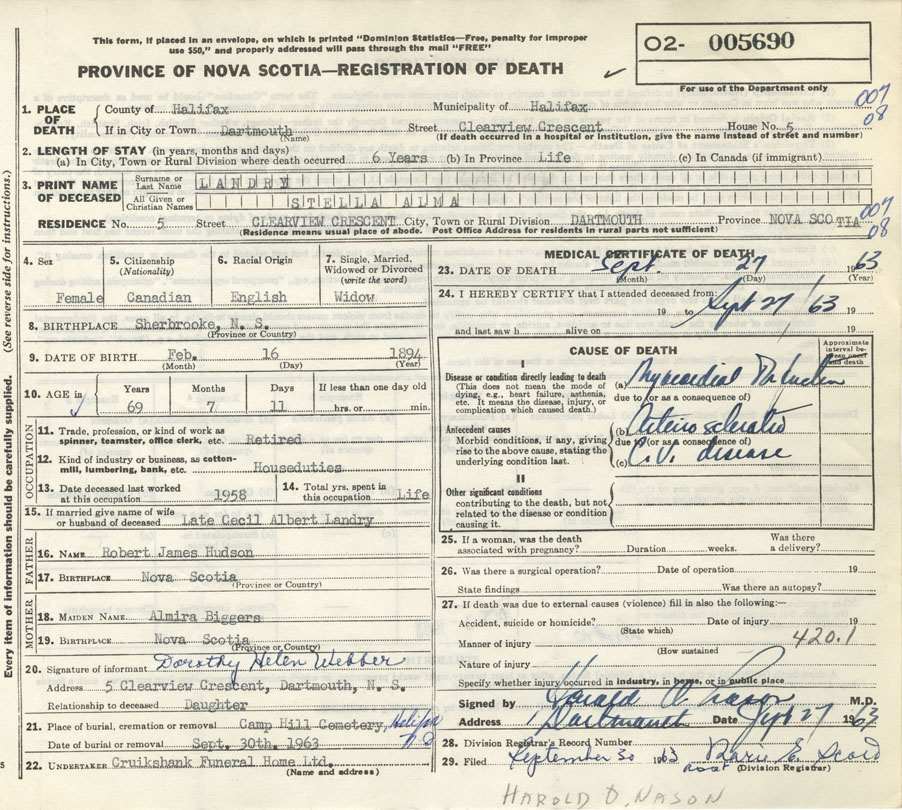 This form, if placed in an envelope, on which is printed "Dominion Statistics—Free, penalty for improper
use $50," and properly addressed will pass through the mail "FREE"
PROVINCE OF NOVA SCOTIA—REGISTRATION OF DEATH
O2- 005690
For use of the Department only
007
08
1. PLACE OF DEATH
County of Halifax Municipality of Halifax
If in City or Town Dartmouth (name) Street Clearview Crescent House No. 5
(If death occurred in a hospital or institution, give the name instead of street and number)
2. LENGTH OF STAY (in years, months and days)
(a) In City, Town or Rural Division where death occurred 6 Years (b) In Province Life (c) In Canada (if immigrant)
3. PRINT NAME OF DECEASED
Surname or Last Name LANDRY
All Given or Christian Names STELLA ALMA
007
08
RESIDENCE No. 5 Street CLEARVIEW CRESCENT City, Town or Rural Division DARTMOUTH Province NOVA SCOTIA
(Residence means usual place of abode. Post Office Address for residents in rural parts not sufficient)
4. Sex
Female
5. Citizenship (Nationality)
Canadian
6. Racial Origin
English
7. Single, Married, Widowed or Divorced (write the word)
Widow
8. BIRTHPLACE Sherbrooke, N. S.
(Province or Country)
9. DATE OF BIRTH Feb. 16 1894
(Month) (Day) (Year)
10. AGE in
Years Months Days If less than one day old
69 7 11 hrs. or min.
OCCUPATION
11. Trade, profession, or kind of work as
spinner, teamster, office clerk, etc. Retired
12. Kind of industry or business, as cotton-
mill, lumbering, bank, etc. Houseduties
13. Date deceased last worked at this occupation 1958
14. Total yrs. spent in this occupation Life
15. If married give name of wife
or husband of deceased Late Cecil Albert Landry
FATHER
16. NAME Robert James Hudson
17. BIRTHPLACE Nova Scotia
(Province or Country)
MOTHER
18. MAIDEN NAME Almira Biggers
19. BIRTHPLACE Nova Scotia
(Province or Country)
20. Signature of informant Dorothy Helen Webber
Address 5 Clearview Crescent, Dartmouth, N. S.
Relationship to deceased Daughter
21. Place of burial, cremation or removal Camp Hill Cemetery, Halifax
Date of burial or removal Sept. 30th. 1963
22. UNDERTAKER Cruikshank Funeral Home Ltd.
(Name and address)
MEDICAL CERTIFICATE OF DEATH
23. DATE OF DEATH Sept. 27 1963
(Month) (Day) (Year)
24. I HEREBY CERTIFY that I attended deceased from:
19 to Sept 27/63 19
and last saw h alive on 19
CAUSE OF DEATH
Approximate interval between onset and death
I
Disease or condition directly leading to death
(This does not mean the mode of
dying, e.g., heart failure, asthenia,
etc. It means the disease, injury, or
complication which caused death.)
(a) Myocardial
due to (or as a consequence of)
Antecedent causes
Morbid conditions, if any, giving
rise to the above cause, stating the
underlying condition last.
(b) Arteriosclerotic
due to (or as a consequence of)
(c) C.V. disease
II
Other significant conditions
contributing to the death, but not
related to the disease or condition
causing it.
25. If a woman, was the death
associated with pregnancy? Duration weeks. Was there a delivery?
26. Was there a surgical operation? Date of operation 19
State findings Was there an autopsy?
27. If death was due to external causes (violence) fill in also the following:—
Accident, suicide or homicide? Date of injury 19
(State which)
420.1
Manner of injury
(How sustained
Nature of injury
Specify whether injury occurred in industry, in home, or in public place
Signed by M.D.
Address Dartmouth Date Sept 27 1963
28. Division Registrar's Record Number
29. Filed September 30 1963
asst (Division Registrar)
HAROLD D. NASON
(See reverse side for instructions.)
Every item of information should be carefully supplied.
5